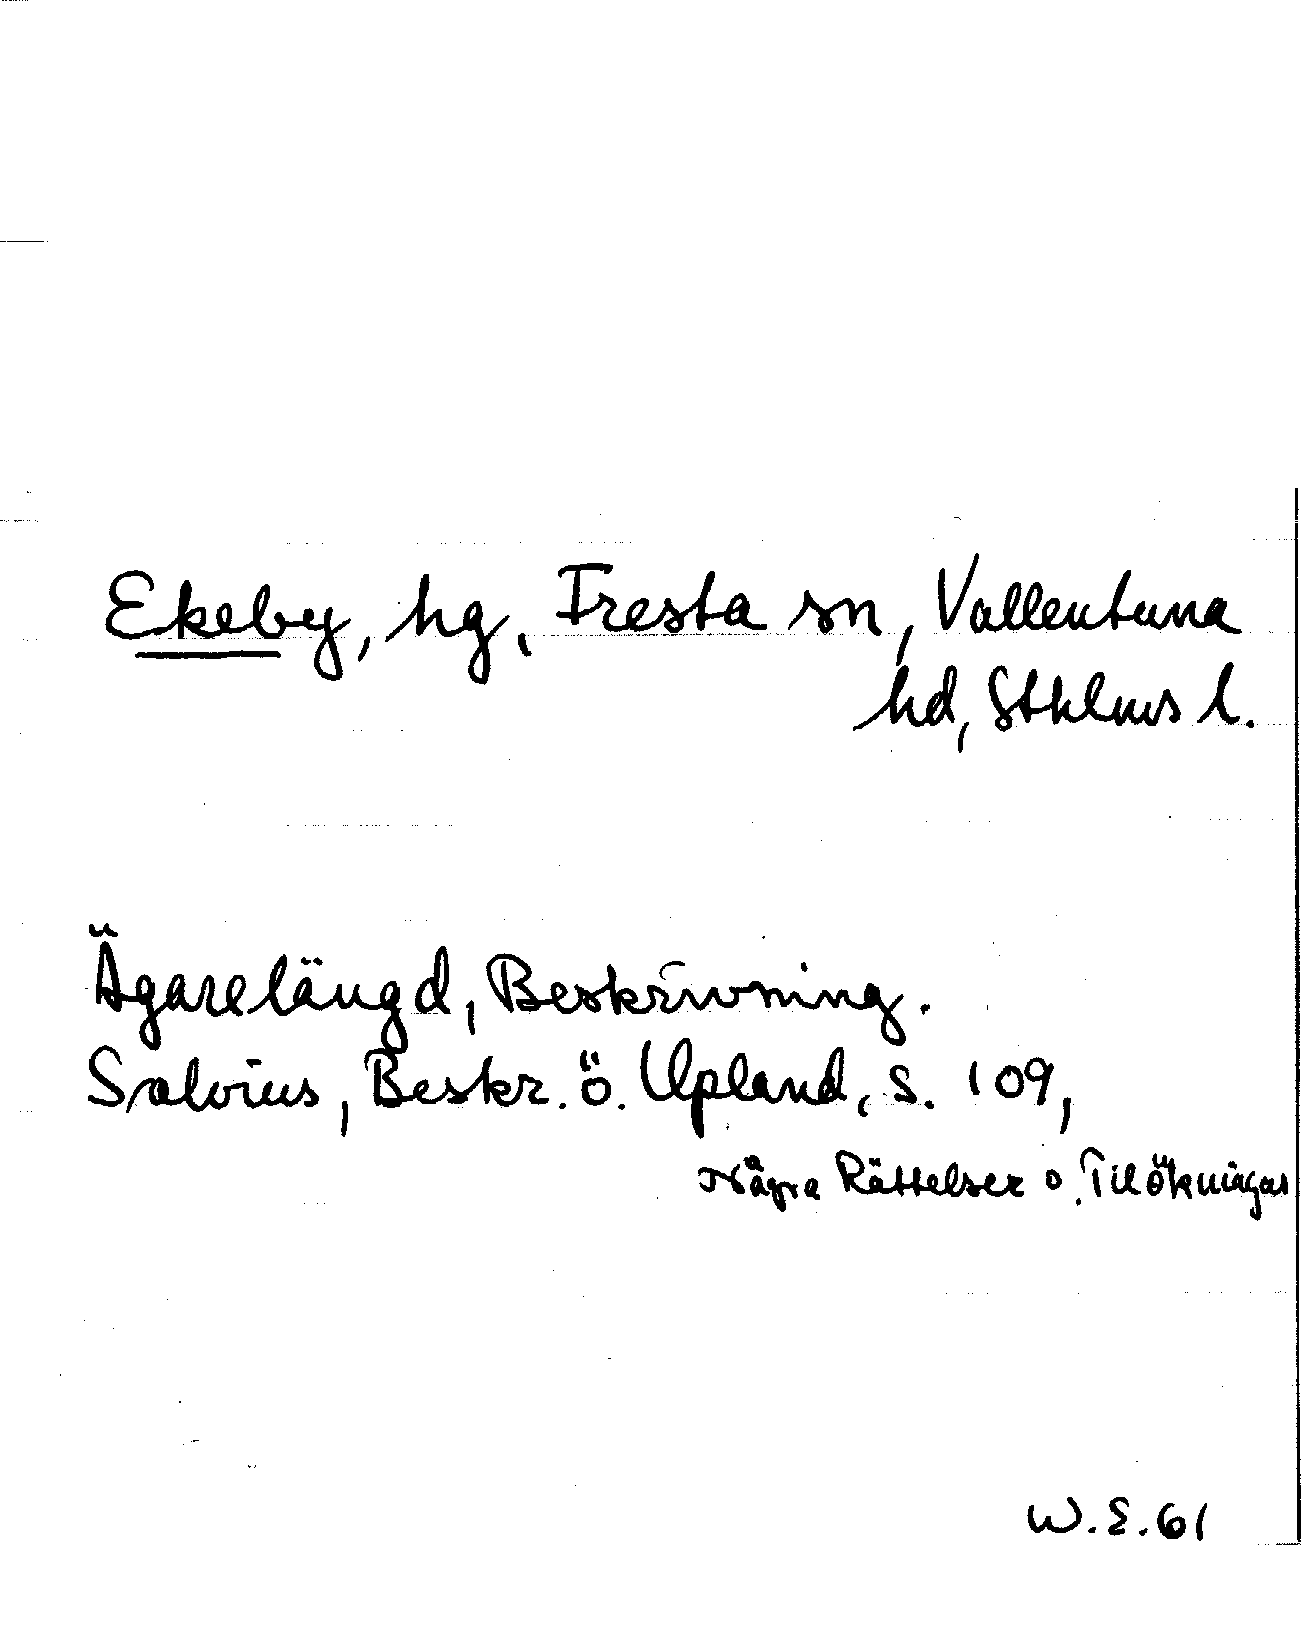 Ekeby, hg, Fresta sn, Vallentuna
hd, Sthlms l.
Ägarelängd, Beskrivning.
Salvius, Beskr. ö. Upland, s. 109,
Några Rättelser o. Tilökningar
W.E.61